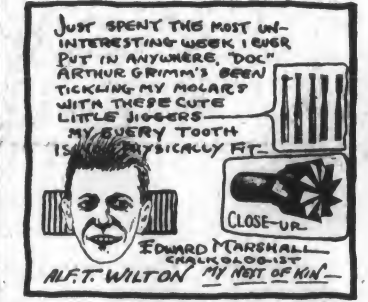 JUST SPENT THE MOST UN-
INTERESTING WEEK I EVER
PUT IN ANYWHERE, "DOC"
ARTHUR GRIMM'S BEEN
TICKLING MY MOLARS
WITH THESE CUTE
LITTLE JIGGERS
MY EVERY TOOTH
IS PHYSICALLY FIT—
CLOSE-UP
EDWARD MARSHALL
CHALKOLOGIST
ALF. T. WILTON MY NEXT OF KIN—